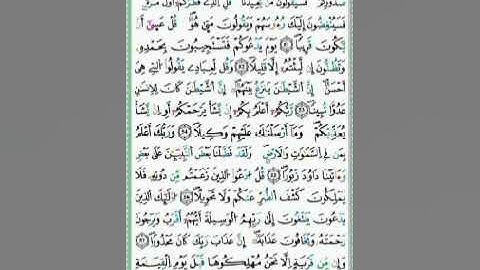 صُدُورِكُمْ فَسَيَقُولُونَ مَن يُعِيدُنَا قُلِ الَّذِى فَطَرَكُمْ أَوَّلَ مَرَّةٍ
فَسَيُنْغِضُونَ إِلَيْكَ رُءُوسَهُمْ وَيَقُولُونَ مَتَىٰ هُوَ قُلْ عَسَىٰٓ أَن
يَكُونَ قَرِيبًا ٥١ يَوْمَ يَدْعُوكُمْ فَتَسْتَجِيبُونَ بِحَمْدِهِۦ
وَتَظُنُّونَ إِن لَّبِثْتُمْ إِلَّا قَلِيلًا ٥٢ وَقُل لِّعِبَادِى يَقُولُوا۟ الَّتِى هِىَ
أَحْسَنُ إِنَّ الشَّيْطَٰنَ يَنزَغُ بَيْنَهُمْ إِنَّ الشَّيْطَٰنَ كَانَ لِلْإِنسَٰنِ
عَدُوًّا مُّبِينًا ٥٣ رَّبُّكُمْ أَعْلَمُ بِكُمْ إِن يَشَأْ يَرْحَمْكُمْ أَوْ إِن يَشَأْ
يُعَذِّبْكُمْ وَمَآ أَرْسَلْنَٰكَ عَلَيْهِمْ وَكِيلًا ٥٤ وَرَبُّكَ أَعْلَمُ
بِمَن فِى السَّمَٰوَٰتِ وَالْأَرْضِ وَلَقَدْ فَضَّلْنَا بَعْضَ النَّبِيِّۦنَ عَلَىٰ بَعْضٍ
وَءَاتَيْنَا دَاوُۥدَ زَبُورًا ٥٥ قُلِ ادْعُوا۟ الَّذِينَ زَعَمْتُم مِّن دُونِهِۦ فَلَا
يَمْلِكُونَ كَشْفَ الضُّرِّ عَنكُمْ وَلَا تَحْوِيلًا ٥٦ أُو۟لَٰٓئِكَ الَّذِينَ
يَدْعُونَ يَبْتَغُونَ إِلَىٰ رَبِّهِمُ الْوَسِيلَةَ أَيُّهُمْ أَقْرَبُ وَيَرْجُونَ
رَحْمَتَهُۥ وَيَخَافُونَ عَذَابَهُۥٓ إِنَّ عَذَابَ رَبِّكَ كَانَ مَحْذُورًا ٥٧
وَإِن مِّن قَرْيَةٍ إِلَّا نَحْنُ مُهْلِكُوهَا قَبْلَ يَوْمِ الْقِيَٰمَةِ